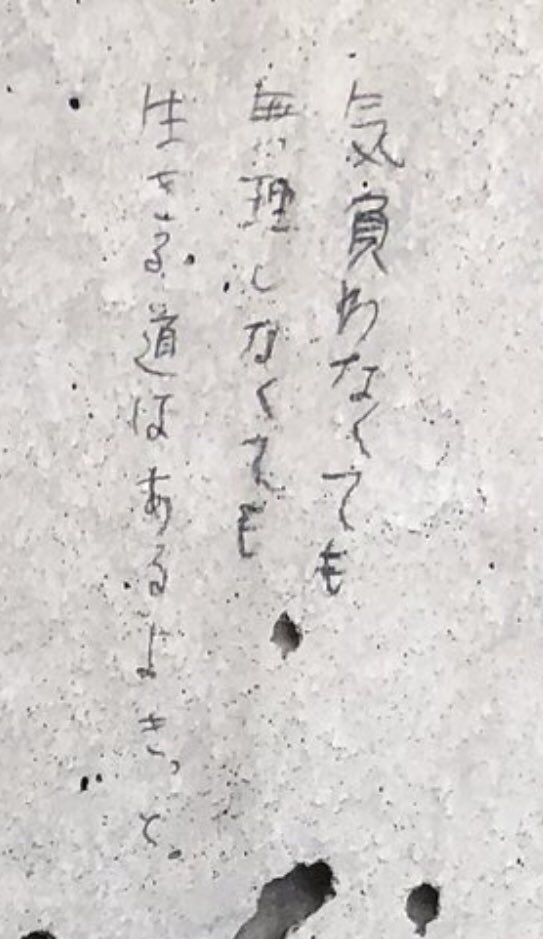 気負わなくても
無理しなくても
生きる道はあるよきっと。